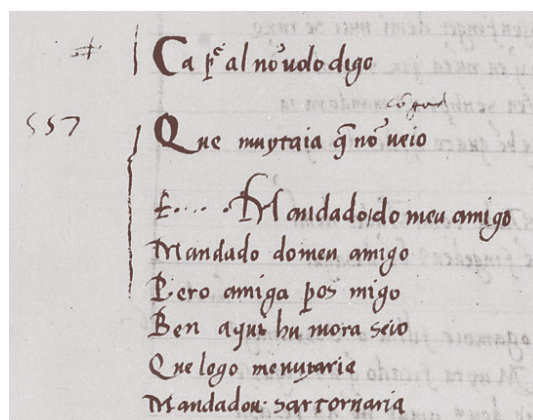 Ca pᵉ al nõ uolo digo
557
Que muytaia q̃ nõ ueio
E.... Mandado do meu amigo
Mandado domeu amigo
Pero amiga pos migo
Ben aqui hu mora seio
Que logo
Mandadou sar tornaria